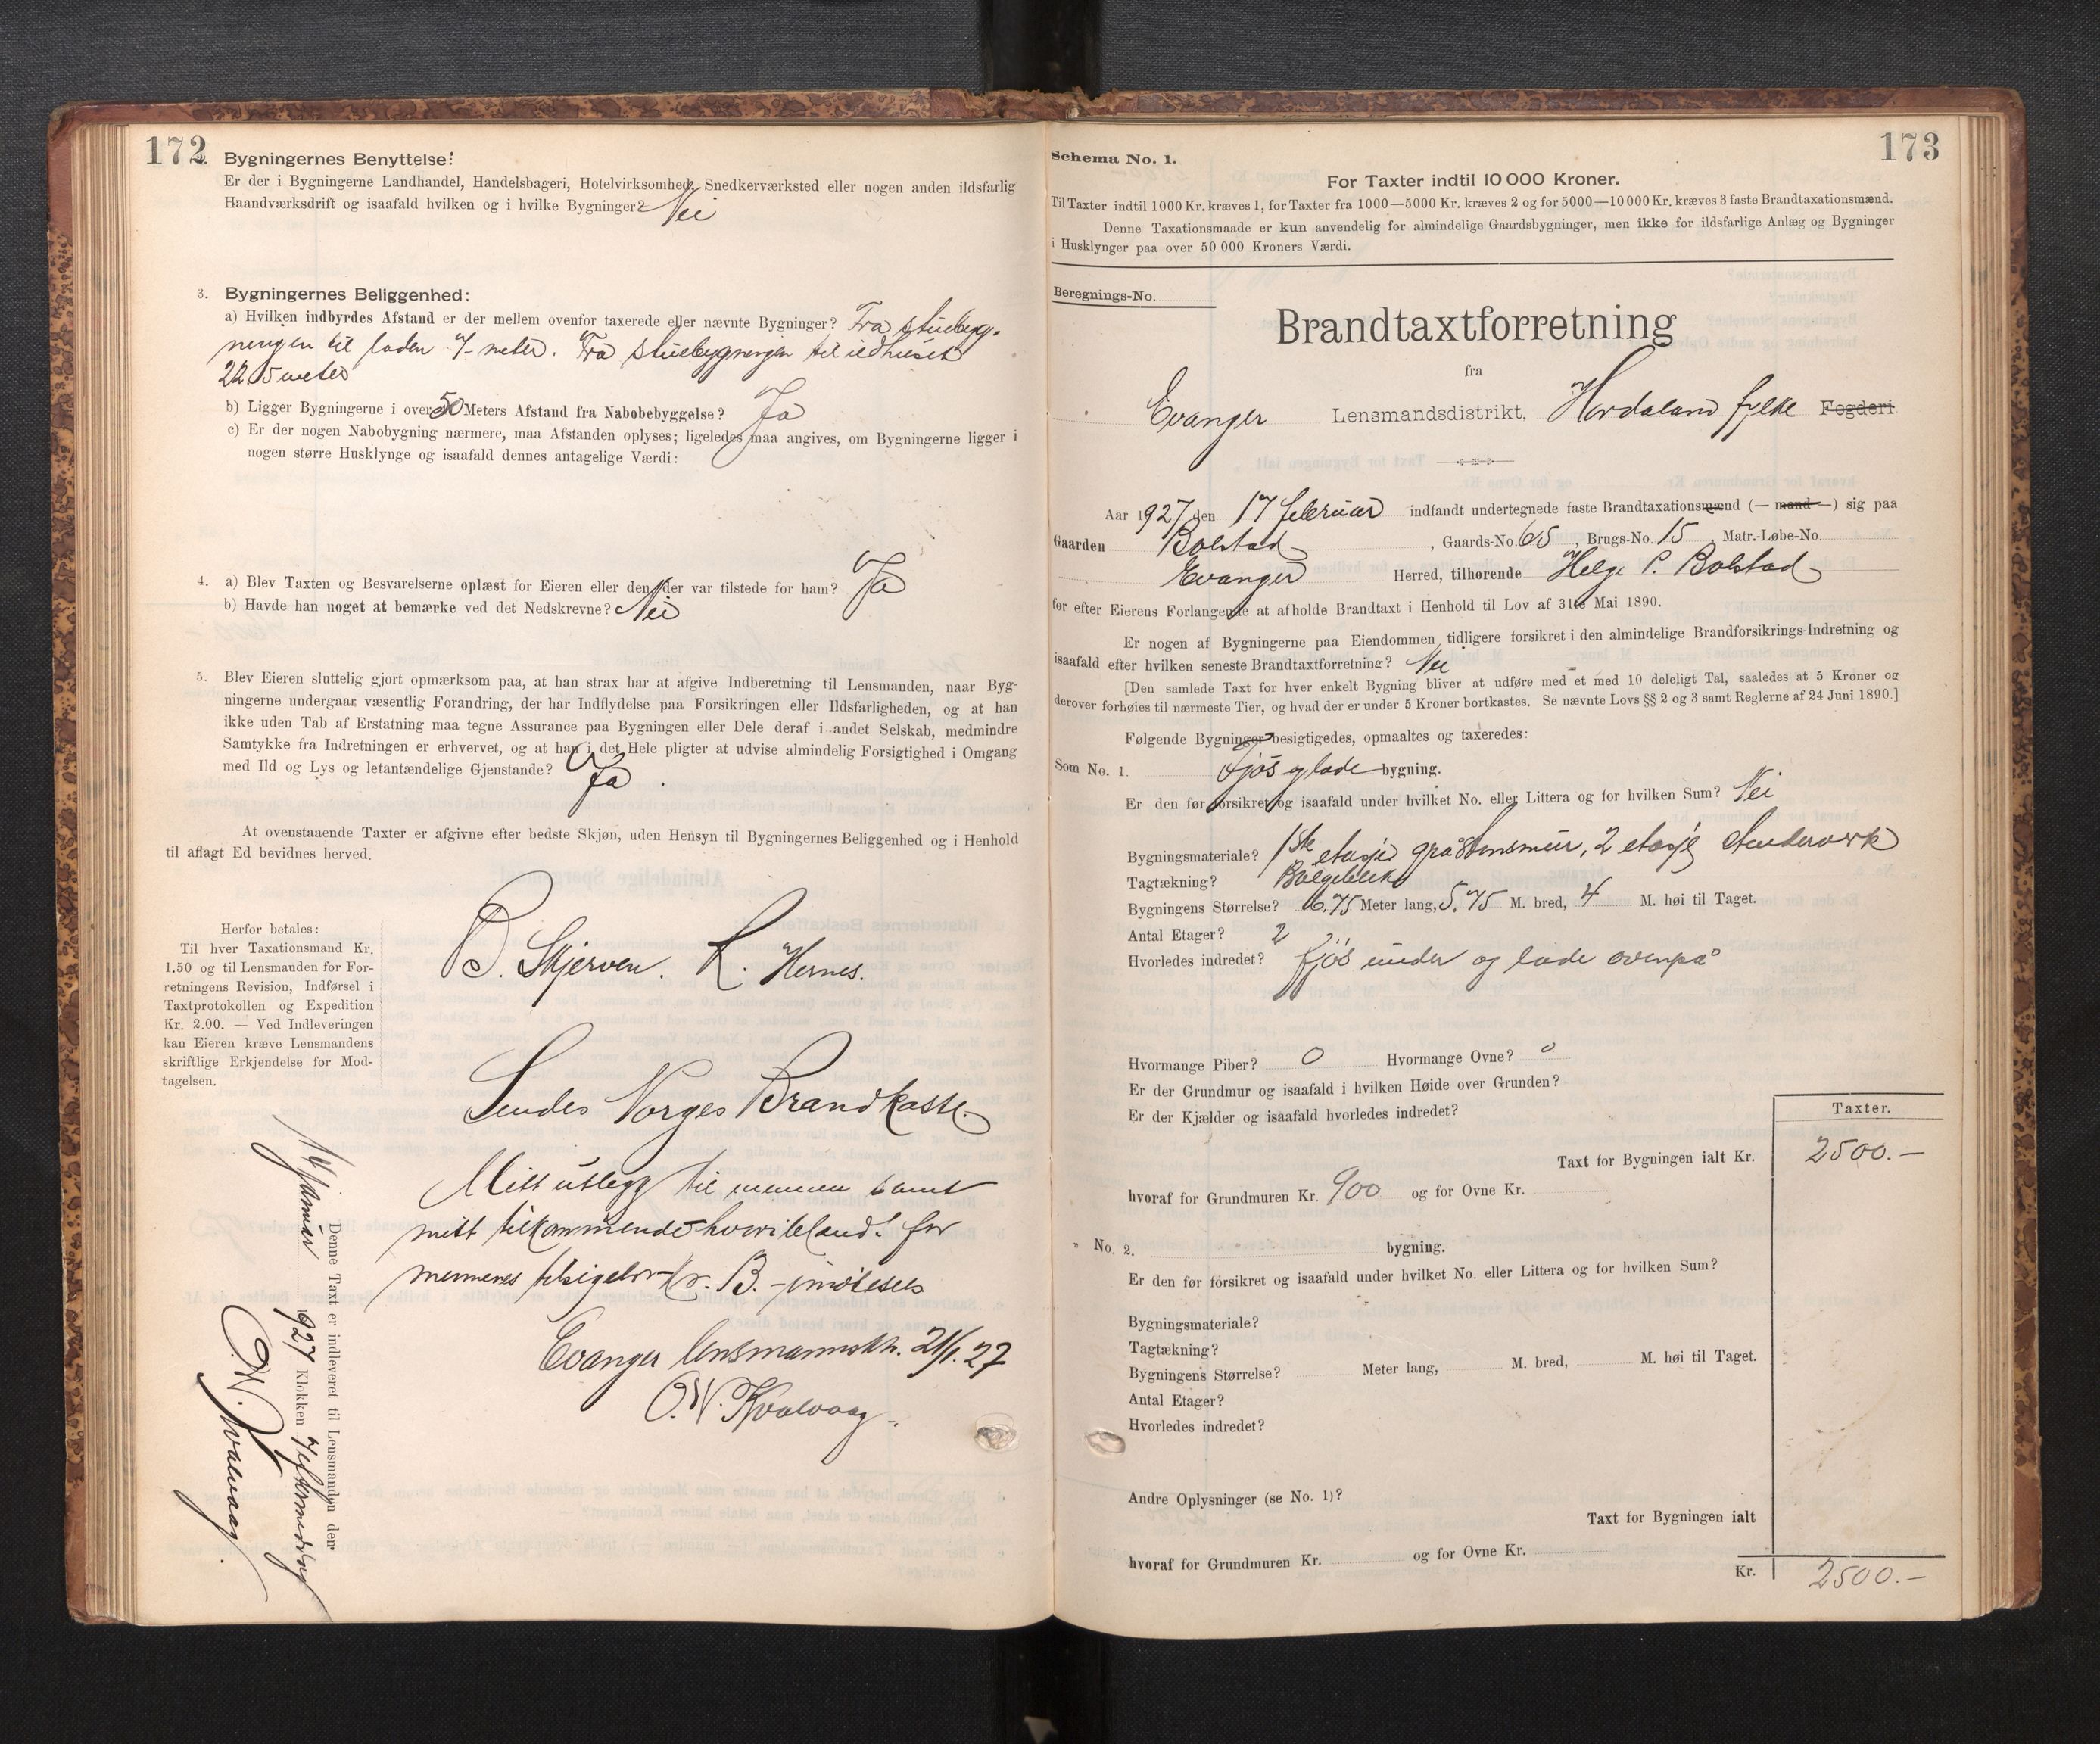 172
2. Bygningernes Benyttelse:
Er der i Bygningerne Landhandel, Handelsbageri, Hotelvirksomhed, Snedkerværksted eller nogen anden ildsfarlig
Haandværksdrift og isaafald hvilken og i hvilke Bygninger? Nei
3. Bygningernes Beliggenhed:
a) Hvilken indbyrdes Afstand er der mellem ovenfor taxerede eller nævnte Bygninger? Fra stuebyg-
ningen til laden 7- meter. Fra stuebygningen til ildhuset
22.5 meter
b) Ligger Bygningerne i over 50 Meters Afstand fra Nabobebyggelse? Ja
c) Er der nogen Nabobygning nærmere, maa Afstanden oplyses; ligeledes maa angives, om Bygningerne ligger i
nogen større Husklynge og isaafald dennes antagelige Værdi:
4. a) Blev Taxten og Besvarelserne oplæst for Eieren eller den, der var tilstede for ham? Ja
b) Havde han noget at bemærke ved det Nedskrevne? Nei
5. Blev Eieren sluttelig gjort opmærksom paa, at han strax har at afgive Indberetning til Lensmanden, naar Byg-
ningerne undergaar væsentlig Forandring, der har Indflydelse paa Forsikringen eller Ildsfarligheden, og at han
ikke uden Tab af Erstatning maa tegne Assurance paa Bygningen eller Dele deraf i andet Selskab, medmindre
Samtykke fra Indretningen er erhvervet, og at han i det Hele pligter at udvise almindelig Forsigtighed i Omgang
med Ild og Lys og letantændelige Gjenstande? Ja.
At ovenstaaende Taxter er afgivne efter bedste Skjøn, uden Hensyn til Bygningernes Beliggenhed og i Henhold
til aflagt Ed bevidnes herved.
B. Skjerven. L. Hernes.
Herfor betales:
Til hver Taxationsmand Kr.
1.50 og til Lensmanden for For-
retningens Revision, Indførsel i
Taxtprotokollen og Expedition
Kr. 2.00. — Ved Indleveringen
kan Eieren kræve Lensmandens
skriftlige Erkjendelse for Mod-
tagelsen.
Sendes Norges Brandkasse.
Mitt utlegg til mennene samt
mitt tilkommende for
mennenes kr. B. imøtesees
Evanger lensmannsktr. 21/1. 27
O.W. Kvalvaag.
Denne Taxt er indleveret til Lensmanden den
januar 1927 Klokken 7 eftermiddag
O.W. Kvalvaag.
173
Schema No. 1.
For Taxter indtil 10 000 Kroner.
Til Taxter indtil 1000 Kr. kræves 1, for Taxter fra 1000—5000 Kr. kræves 2 og for 5000—10 000 Kr. kræves 3 faste Brandtaxationsmænd.
Denne Taxationsmaade er kun anvendelig for almindelige Gaardsbygninger, men ikke for ildsfarlige Anlæg og Bygninger
i Husklynger paa over 50 000 Kroners Værdi.
Beregnings-No.
Brandtaxtforretning
fra
Evanger Lensmandsdistrikt, Hordaland fylke Fogderi
Aar 1927 den 17 februar indfandt undertegnede faste Brandtaxationsmænd (— mand —) sig paa
Gaarden Bolstad, Gaards-No. 65, Brugs-No. 15, Matr.-Løbe-No.
Evanger Herred, tilhørende Helge P. Bolstad
for efter Eierens Forlangende at afholde Brandtaxt i Henhold til Lov af 31te Mai 1890.
Er nogen af Bygningerne paa Eiendommen tidligere forsikret i den almindelige Brandforsikrings-Indretning og
isaafald efter hvilken seneste Brandtaxtforretning? Nei
[Den samlede Taxt for hver enkelt Bygning bliver at udføre med et med 10 deleligt Tal, saaledes at 5 Kroner og
derover forhøies til nærmeste Tier, og hvad der er under 5 Kroner bortkastes. Se nævnte Lovs §§ 2 og 3 samt Reglerne af 24 Juni 1890.]
Følgende Bygninger besigtigedes, opmaaltes og taxeredes:
Som No. 1. Fjøs og lade bygning.
Er den før forsikret og isaafald under hvilket No. eller Littera og for hvilken Sum? Nei
Bygningsmateriale? 1ste etasje gråstensmur, 2 etasje stenderverk
Tagtækning? Bølgeblikk
Bygningens Størrelse? 6.75 Meter lang, 5.75 M. bred, 4 M. høi til Taget.
Antal Etager? 2
Hvorledes indredet? fjøs under og lade ovenpå
Hvormange Piber? 0 Hvormange Ovne? 0
Er der Grundmur og isaafald i hvilken Høide over Grunden?
Er der Kjælder og isaafald hvorledes indredet?
Taxter.
Taxt for Bygningen ialt Kr. 2500.—
hvoraf for Grundmuren Kr. 900 og for Ovne Kr.
" No. 2. bygning.
Er den før forsikret og isaafald under hvilket No. eller Littera og for hvilken Sum?
Bygningsmateriale?
Tagtækning?
Bygningens Størrelse? Meter lang, M. bred, M. høi til Taget.
Antal Etager?
Hvorledes indredet?
Andre Oplysninger (se No. 1)?
Taxt for Bygningen ialt
hvoraf for Grundmuren Kr. og for Ovne Kr.
Kr. 2500.—